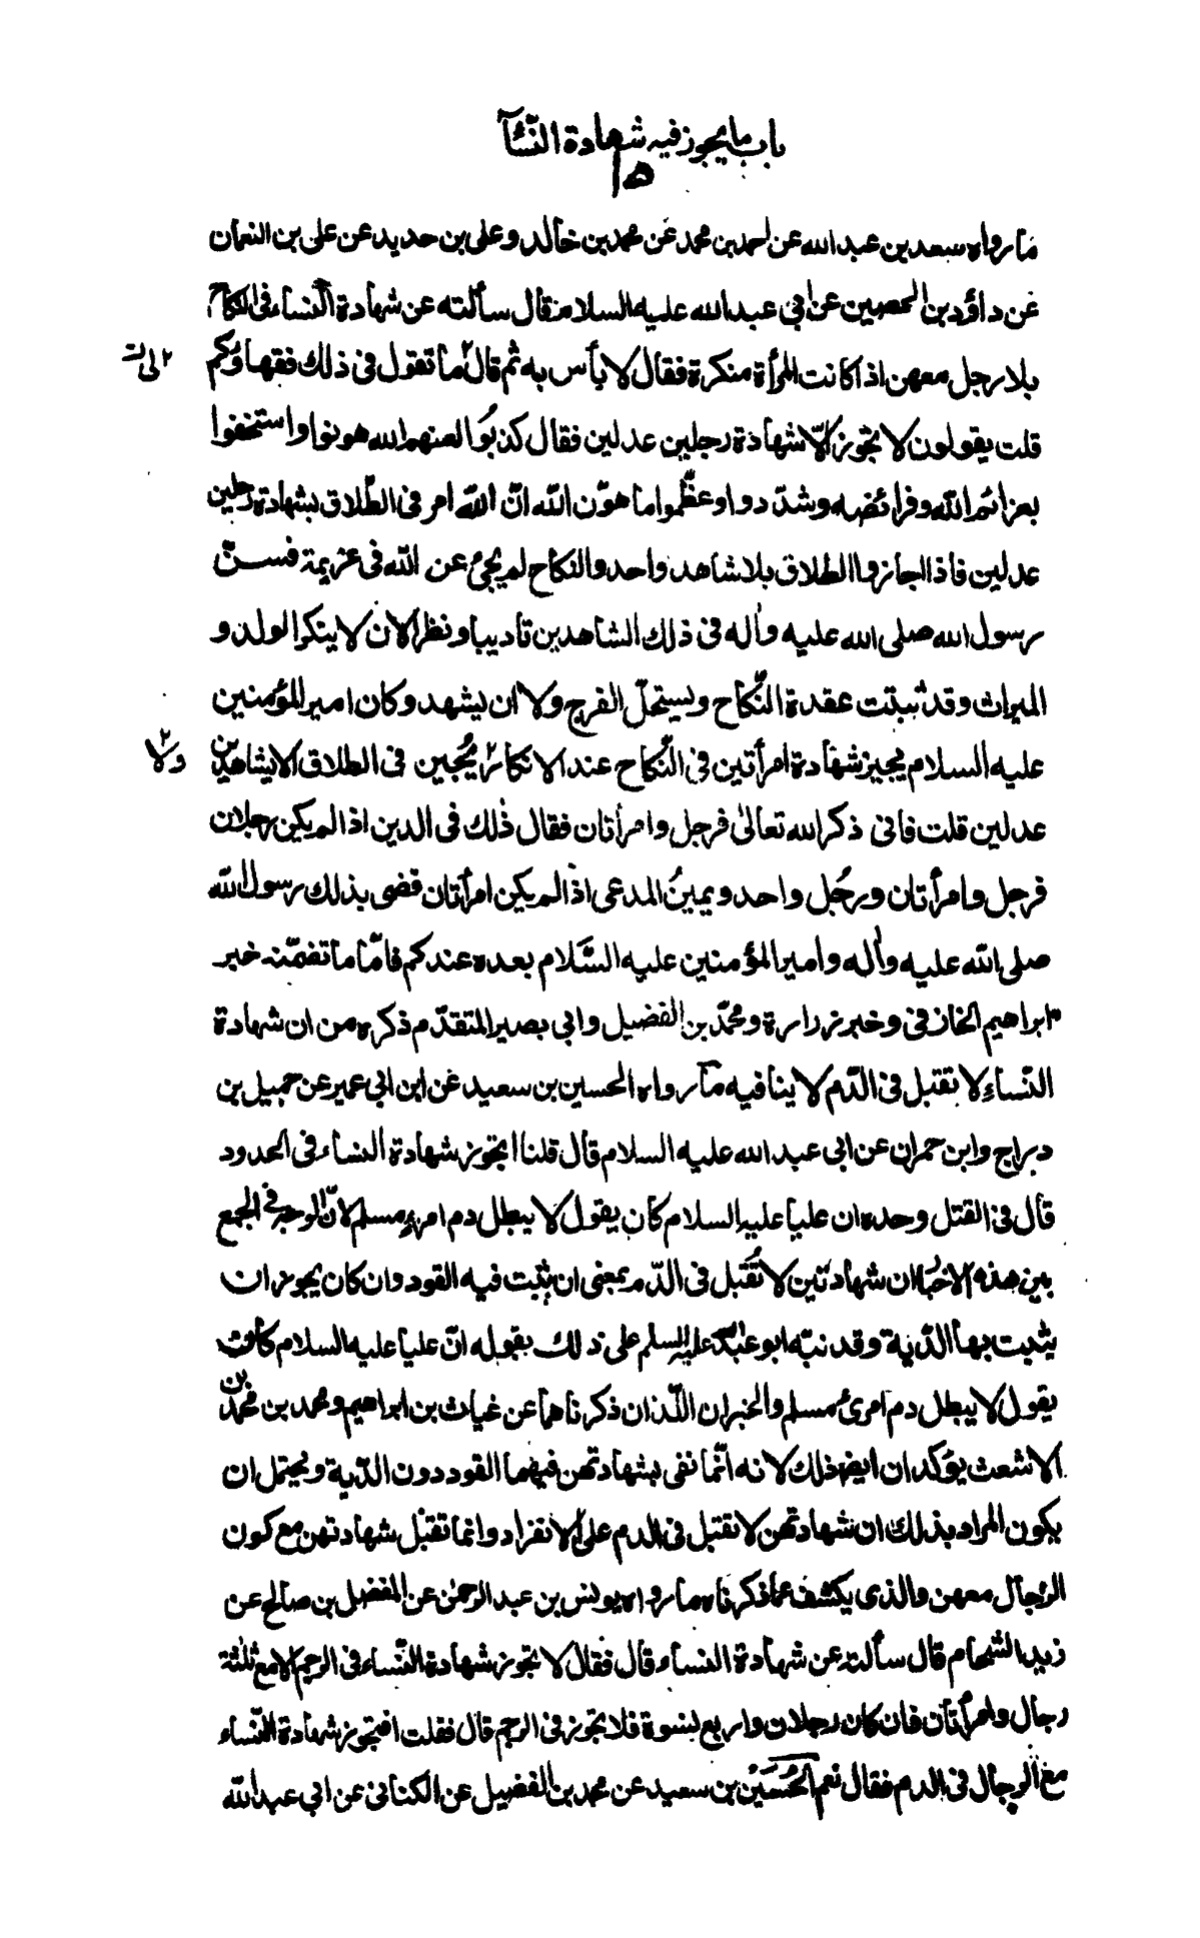 باب ما يجوز فيه شهادة النّسآء
١٥
ما رواه سعد بن عبد الله عن احمد بن محمد عن محمد بن خالد وعلى بن حديد عن على بن النعمان
عن داؤد بن الحصين عن ابي عبد الله عليه السلام قال سألته عن شهادة النساء في النكاح
بلا رجل معهن اذا كانت المرأة منكرة فقال لا بأس به ثم قال ٢ ما تقول في ذلك فقهاؤكم
٢ لى
قلت يقولون لا تجوز الّا شهادة رجلين عدلين فقال كذبُوا لعنهم الله هونوا واستخفوا
بعزائم الله وفرائضه وشدّدوا وعظّموا ما هوّن الله انّ الله امر فى الطّلاق بشهادة رجلين
عدلين فاذا اجازوا الطلاق بلا شاهد واحد والنكاح لم يجئ عن الله فى عزيمة فسنّ
رسول الله صلى الله عليه واله فى ذلك الشاهدين تاديبا ونظرا لان لا ينكر الولد و
الميراث وقد ثبتت عقدة النّكاح ويستحلّ الفرج ولا ان يشهد وكان امير المؤمنين
عليه السلام يجيز شهادة امرأتين فى النّكاح عند الانكار ٢ يُجيز فى الطلاق الا شاهدين
٢ ولا
عدلين قلت فانى ذكر الله تعالىٰ فرجل وامرأتان فقال ذٰلك فى الدين اذا لم يكن رجلان
فرجل وامرأتان ورجُل واحد ويمينُ المدعى اذا لم يكن امرأتان قضى بذلك رسول الله
صلى الله عليه واٰله وامير المؤمنين عليه السَّلام بعده عندكم فامّا ما تضمّنه خبر
ابراهيم الخارفى وخبر زرارة ومحمّد بن الفضيل وابي بصير المتقدّم ذكره من ان شهادة
النّساءِ لا تقبل فى الدّم لا ينافيه مآ رواه الحسين بن سعيد عن ابن ابي عمير عن جميل بن
دراج وابن حمران عن ابى عبد الله عليه السلام قال قلنا اتجوز شهادة النساء فى الحدود
قال فى القتل وحده ان عليا عليه السلام كان يقول لا يبطل دم امرءٍ مسلم لانّ الوجه فى الجمع
بين هذه الاخبار ان شهادتين لا تُقبل فى الدّم بمعنى ان يثبت فيه القود وان كان يجوز ان
يثبت بها الدّية وقد نبّه ابو عبد الله عليه السلم على ذلك بقوله انّ عليا عليه السلام كان
يقول لا يبطل دم امرئ مسلم والخبران اللّذان ذكرناهما عن غياث بن ابراهيم ومحمد بن محمّد بن
الاشعث يؤكدان ايضا ذلك لانه انّما نفى بشهادتهن فيهما القود دون الدّية ويحتمل ان
يكون المراد بذلك ان شهادتهن لا تقبل فى الدم على الانفراد وانما تقبل شهادتهن مع كون
الرّجال معهن والذى يكشف عما ذكرناه ما رواه يونس بن عبد الرحمن عن المفضل بن صالح عن
زيد الشّحام قال سألته عن شهادة النساء قال فقال لا تجوز شهادة النّساء فى الرجم الا مع ثلٰثة
رجال وامرأتان فان كان رجلان واربع نسوة فلا تجوز فى الرجم قال فقلت افتجوز شهادة النّساء
مع الرجال فى الدم فقال نعم الحُسَيْن بن سعيد عن محمد بن الفضيل عن الكنانى عن ابي عبد الله